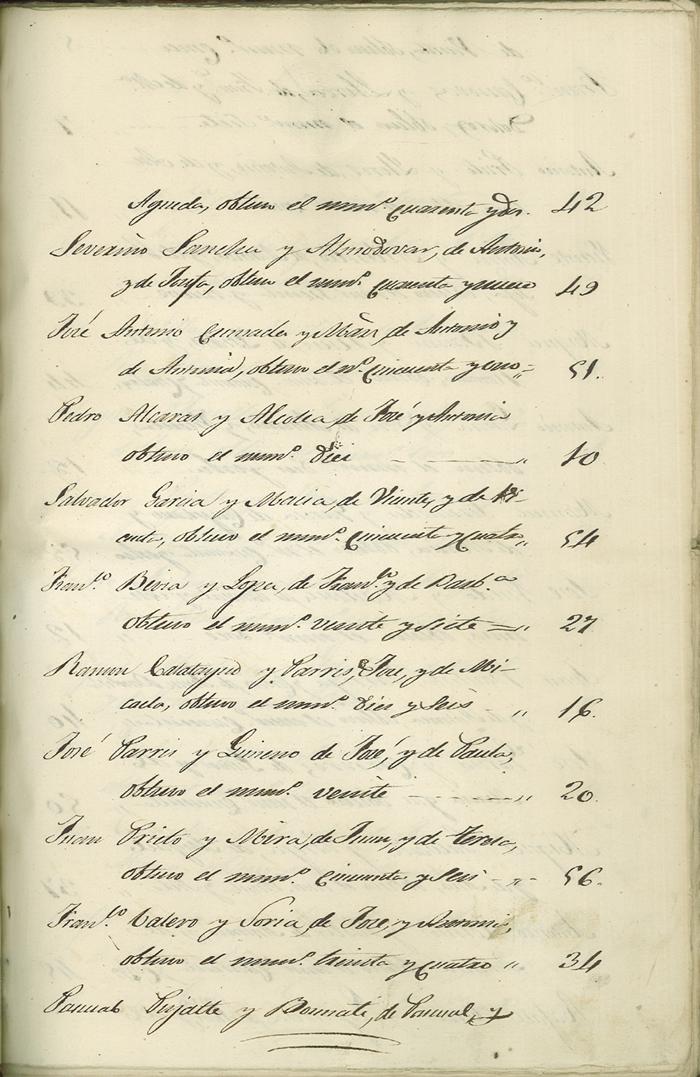 Agueda, obtuvo el num.º cuarenta y dos. 42
Severino Sanchez y Almodovar, de Antonio,
y de Josefa, obtuvo el num.º cuarenta y nueve 49
José Antonio Quesada y Mas, de Antonio y
de Antonia, obtuvo el n.º cincuenta y uno 51.
Pedro Alcaras y Alcolea, de José y Antonia
obtuvo el num.º diez 10
Salvador Garcia y Macia, de Vicente, y de
obtuvo el num.º cincuenta y cuatro 54
Fran.co y Lopez, de Fran.co y de Barb.a
obtuvo el num.º veinte y siete 27
Ramon Calatayud y Parres, José, y de Mi-
caela, obtuvo el num.º diez y seis 16.
José Parres y Gimeno de José, y de Paula,
obtuvo el num.º veinte 20.
Juan Prieto y Mira, de Juan, y de Teresa,
obtuvo el num.º cincuenta y seis 56.
Fran.co Valero y Soria, de José, y Antonia,
obtuvo el num.º treinta y cuatro 34
Pascual Pujalte y de Pascual, y